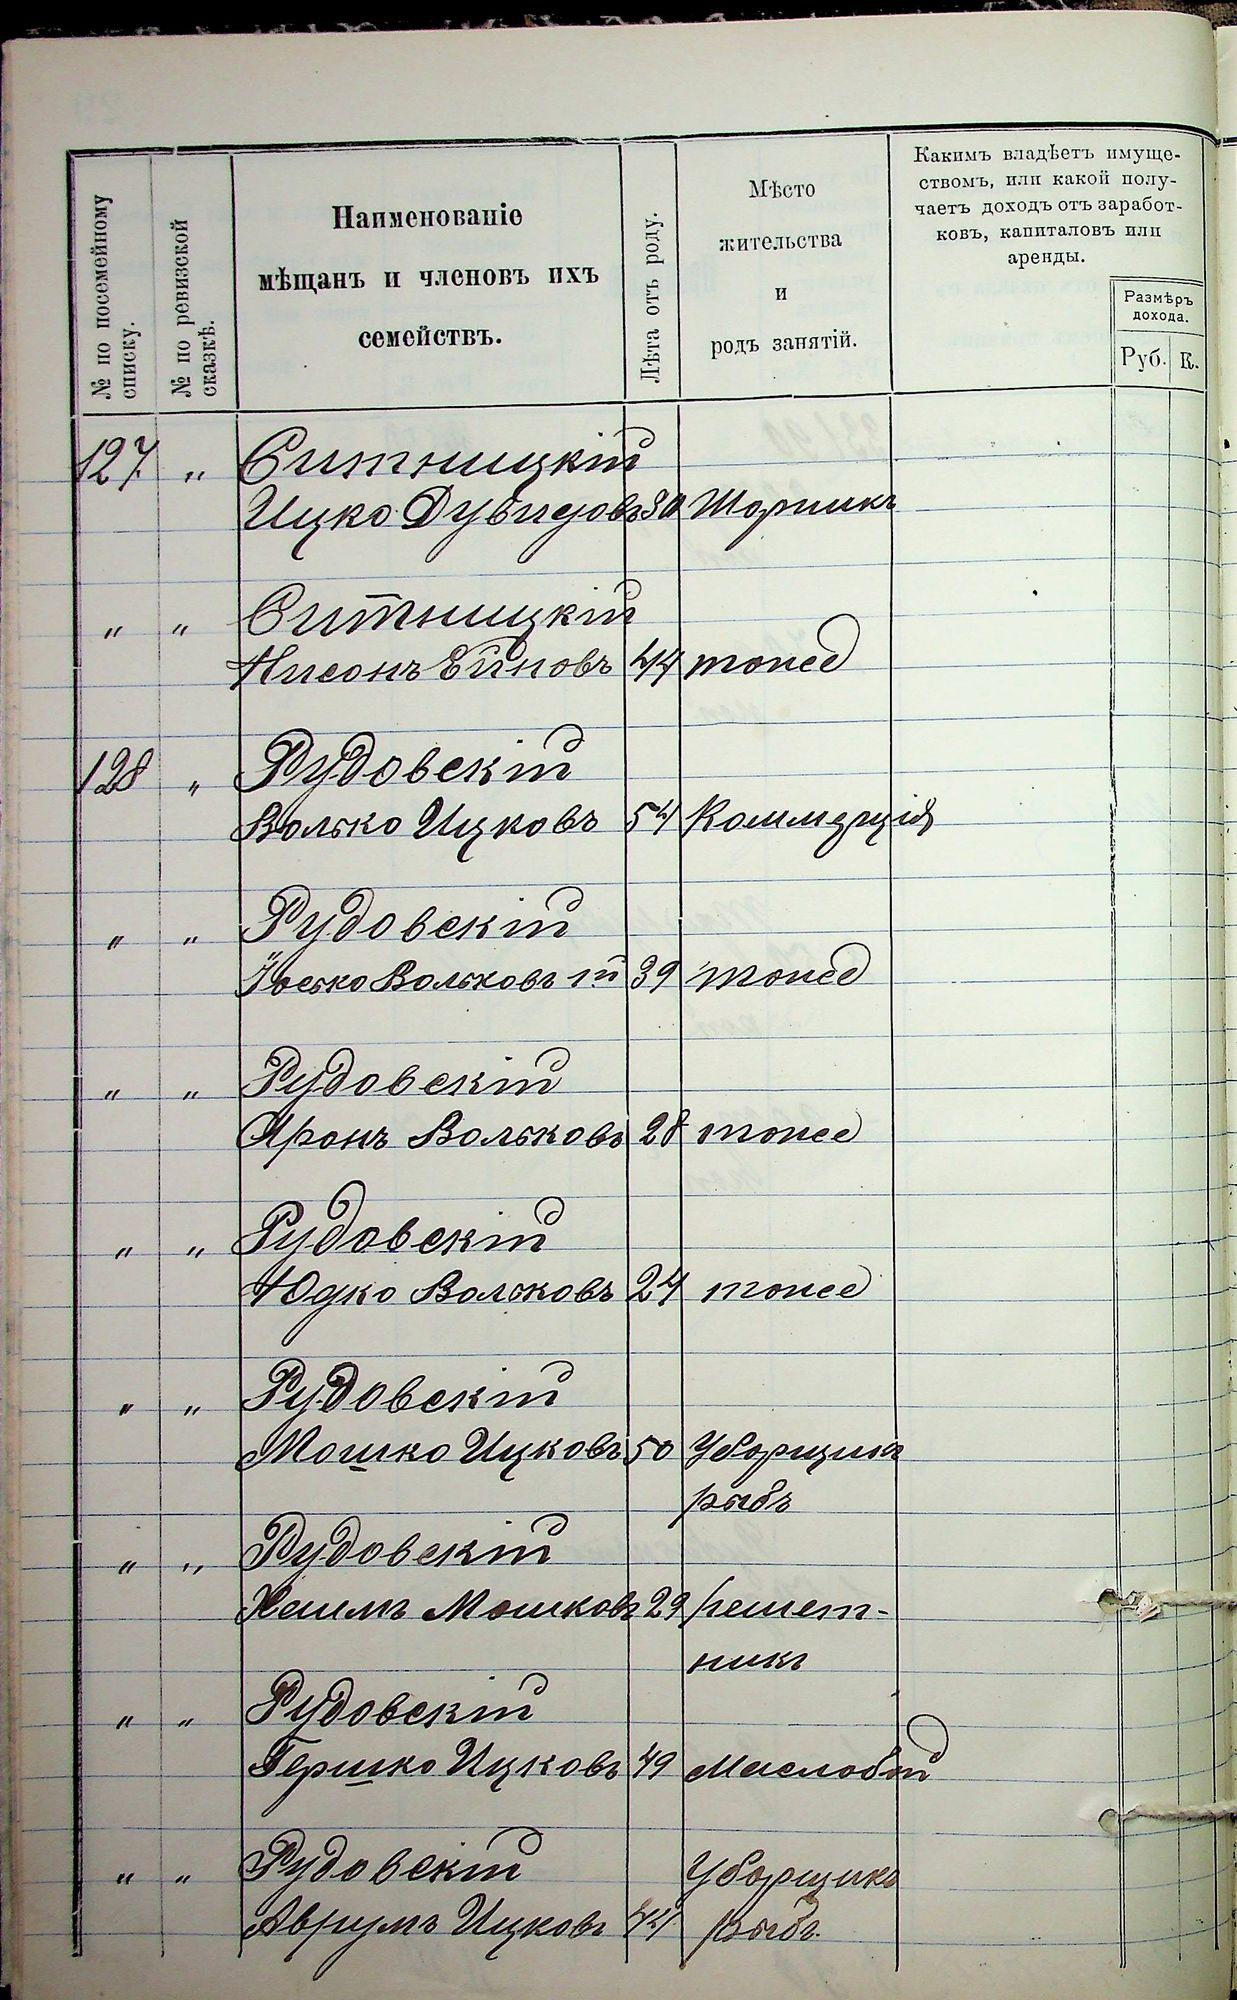 № по посемейному списку.
№ по ревизской сказкѣ.
Наименованіе
мѣщанъ и членовъ ихъ
семействъ.
Лѣта отъ роду.
Мѣсто
жительства
и
родъ занятій.
Какимъ владѣетъ имуще-
ствомъ, или какой полу-
чаетъ доходъ отъ заработ-
ковъ, капиталовъ или
аренды.
Размѣръ
дохода.
Руб. К.
127 „ Ситницкій
Ицко Дувидовъ 30 Шорникъ
„ „ Ситницкій
Нисонъ 44 тоже
128 „ Рудовскій
Волько Ицковъ 54 Коммерція
„ „ Рудовскій
Іосько Вольковъ 1й 39 тоже
„ „ Рудовскій
Аронъ Вольковъ 28 тоже
„ „ Рудовскій
Юдко Вольковъ 24 тоже
„ „ Рудовскій
Мошко Ицковъ 50 Уборщикъ
рыбъ
„ „ Рудовскій
Хаимъ Мошковъ 29 решет-
никъ
„ „ Рудовскій
Гершко Ицковъ 49 Маслобой
„ „ Рудовскій Уборщикъ
Аврумъ Ицковъ 44 рыбъ.